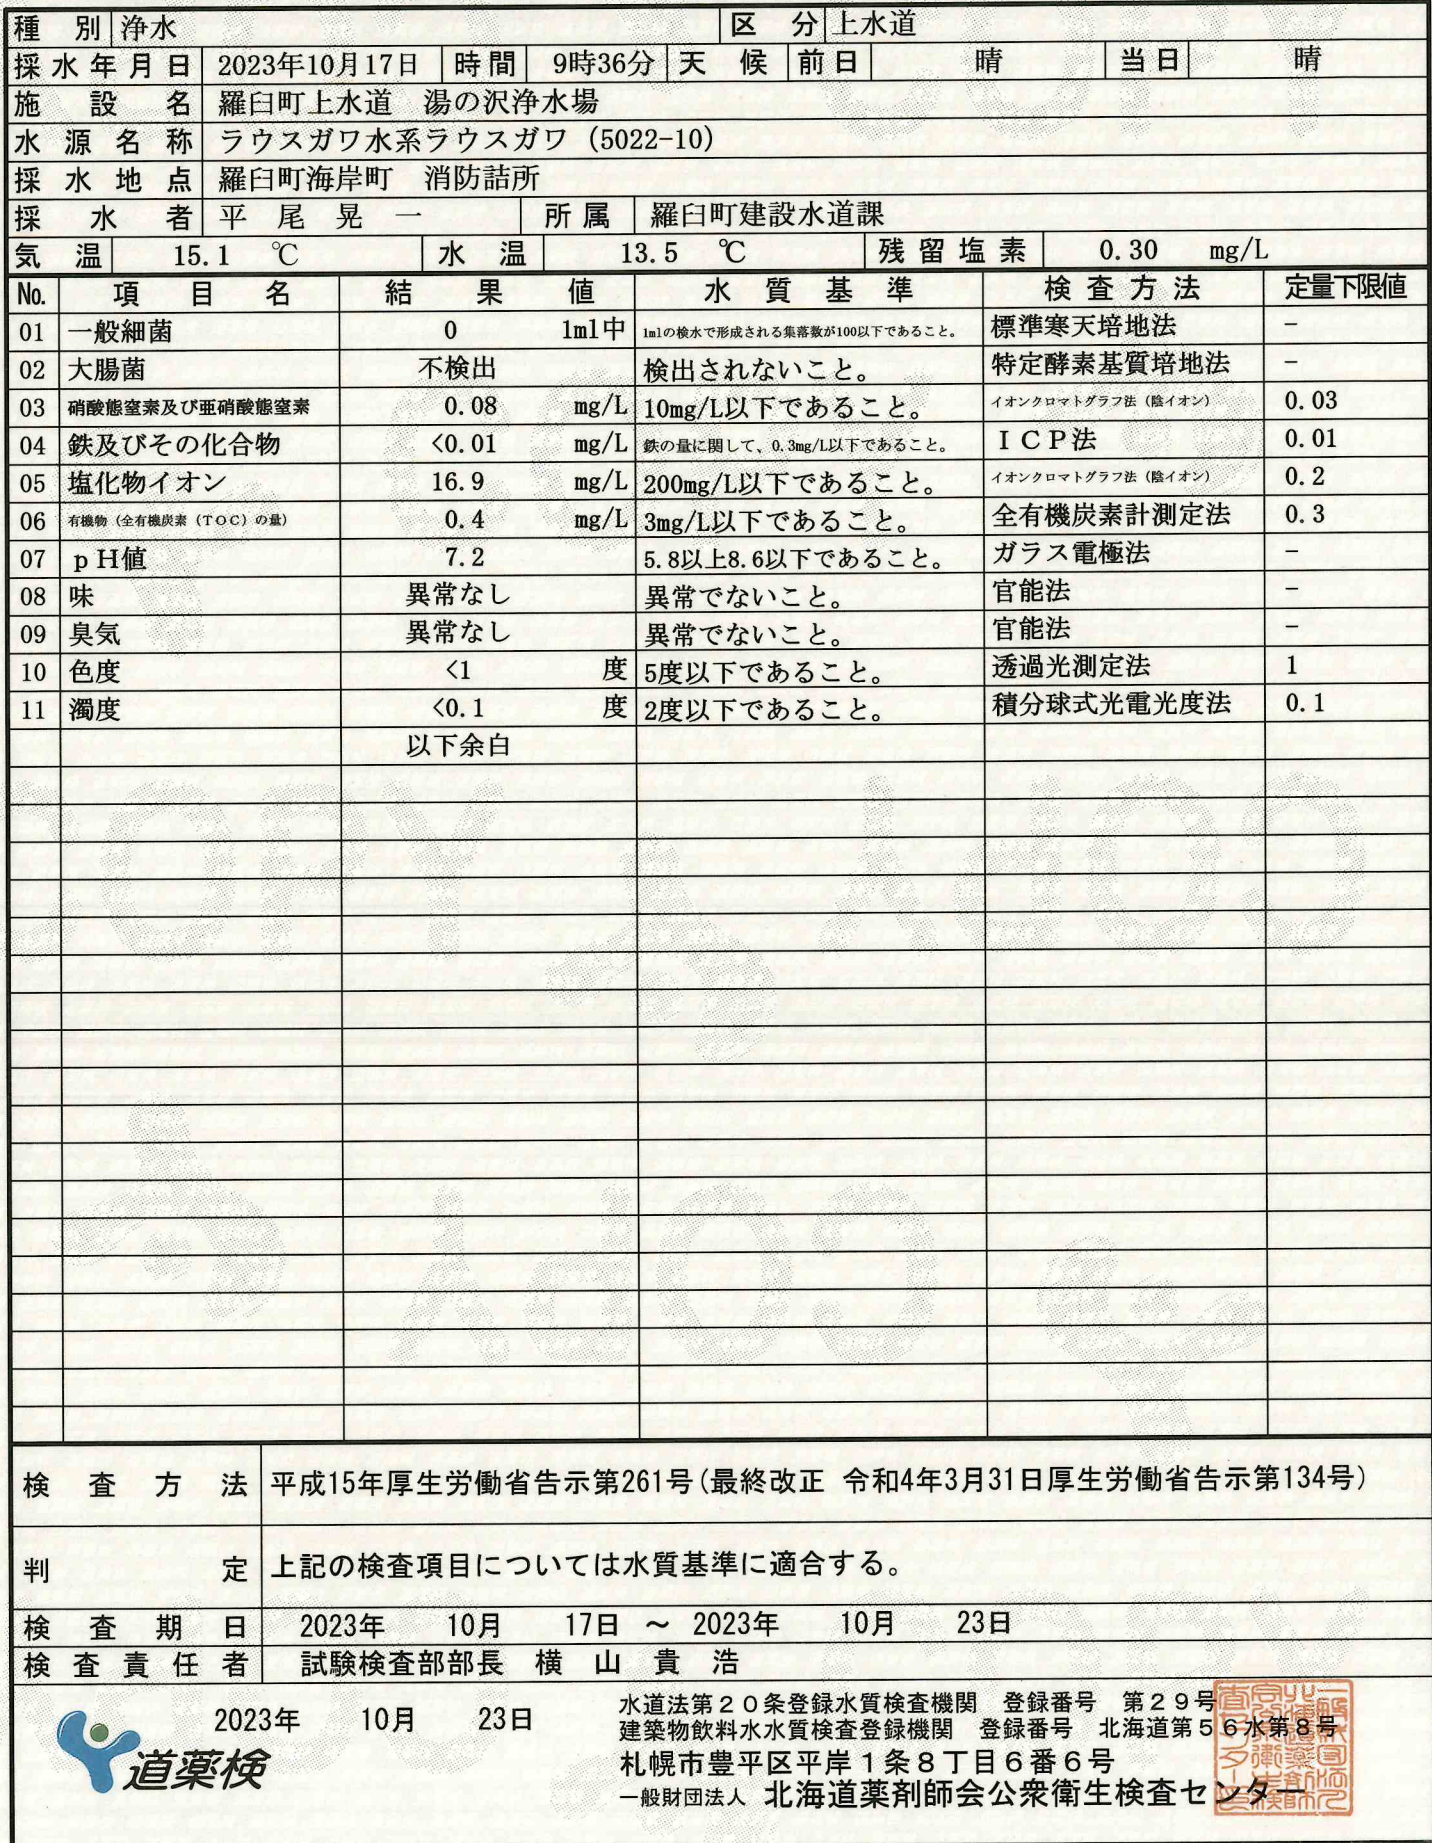 種別 浄水 区分 上水道
採水年月日 2023年10月17日 時間 9時36分 天候 前日 晴 当日 晴
施設名 羅臼町上水道 湯の沢浄水場
水源名称 ラウスガワ水系ラウスガワ (5022-10)
採水地点 羅臼町海岸町 消防詰所
採水者 平尾晃一 所属 羅臼町建設水道課
気温 15.1 ℃ 水温 13.5 ℃ 残留塩素 0.30 mg/L
No. 項目名 結果値 水質基準 検査方法 定量下限値
01 一般細菌 0 1ml中 1mlの検水で形成される集落数が100以下であること。 標準寒天培地法 −
02 大腸菌 不検出 検出されないこと。 特定酵素基質培地法 −
03 硝酸態窒素及び亜硝酸態窒素 0.08 mg/L 10mg/L以下であること。 イオンクロマトグラフ法（陰イオン） 0.03
04 鉄及びその化合物 <0.01 mg/L 鉄の量に関して、0.3mg/L以下であること。 ＩＣＰ法 0.01
05 塩化物イオン 16.9 mg/L 200mg/L以下であること。 イオンクロマトグラフ法（陰イオン） 0.2
06 有機物（全有機炭素（ＴＯＣ）の量） 0.4 mg/L 3mg/L以下であること。 全有機炭素計測定法 0.3
07 ｐＨ値 7.2 5.8以上8.6以下であること。 ガラス電極法 −
08 味 異常なし 異常でないこと。 官能法 −
09 臭気 異常なし 異常でないこと。 官能法 −
10 色度 <1 度 5度以下であること。 透過光測定法 1
11 濁度 <0.1 度 2度以下であること。 積分球式光電光度法 0.1
以下余白
COPY COPY
COPY
検査方法 平成15年厚生労働省告示第261号(最終改正 令和4年3月31日厚生労働省告示第134号)
判定 上記の検査項目については水質基準に適合する。
検査期日 2023年 10月 17日 〜 2023年 10月 23日
検査責任者 試験検査部部長 横山貴浩
2023年 10月 23日
道薬検
水道法第２０条登録水質検査機関 登録番号 第２９号
建築物飲料水水質検査登録機関 登録番号 北海道第５６水第８号
札幌市豊平区平岸１条８丁目６番６号
一般財団法人 北海道薬剤師会公衆衛生検査センター